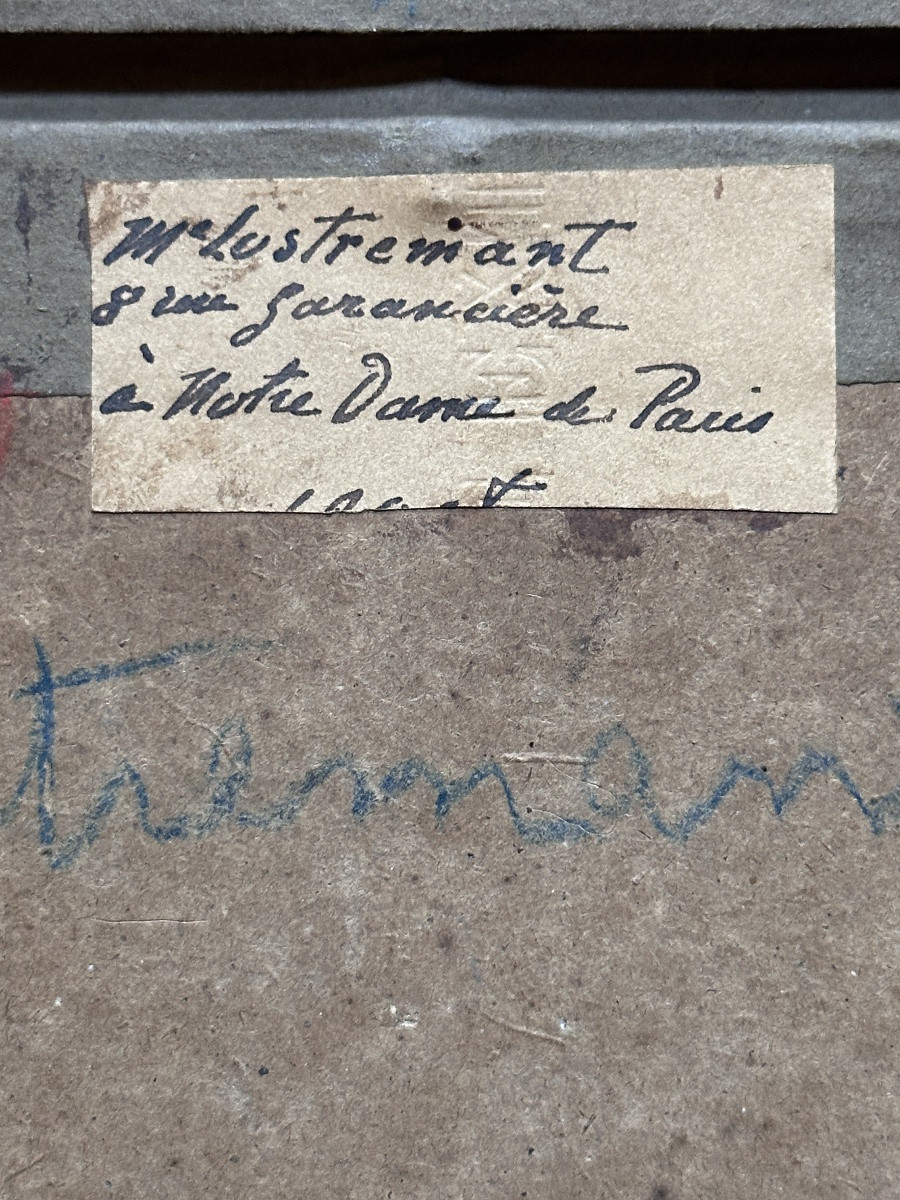 Me Lostremant
8 rue Garancière
à Notre Dame de Paris
treman